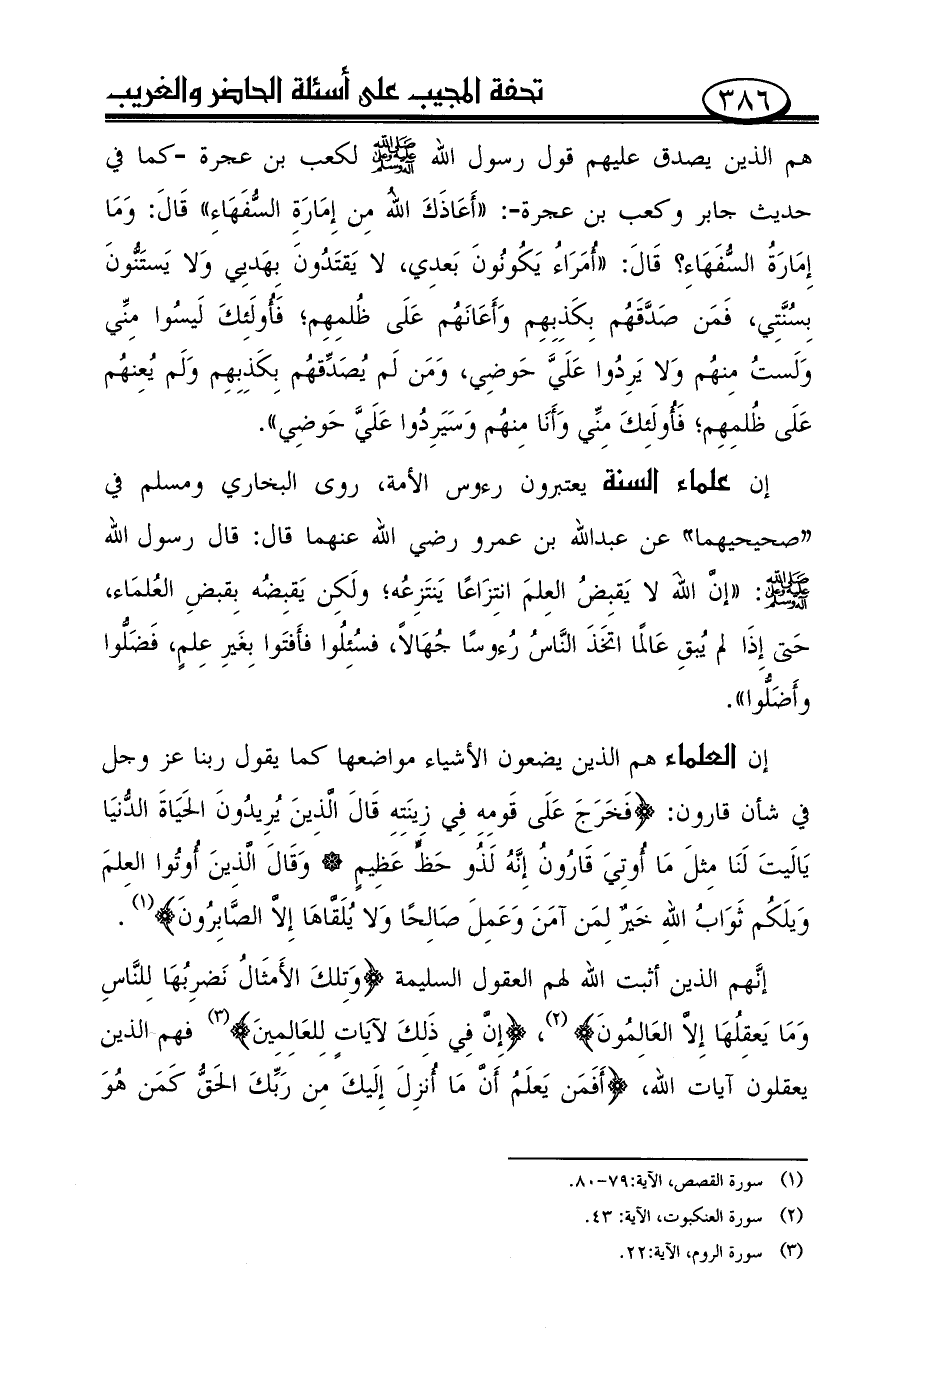 ٣٨٦
تحفة المجيب على أسئلة الحاضر والغريب
هم الذين يصدق عليهم قول رسول الله ﷺ لكعب بن عجرة -كما في
حديث جابر وكعب بن عجرة-: «أَعَاذَكَ اللهُ مِن إِمَارَةِ السُّفَهَاءِ» قَالَ: وَمَا
إِمَارَةُ السُّفَهَاءِ؟ قَالَ: «أُمَرَاءُ يَكُونُونَ بَعدِي، لا يَقتَدُونَ بِهَديِي وَلا يَستَنُّونَ
بِسُنَّتِي، فَمَن صَدَّقَهُم بِكَذِبِهِم وَأَعَانَهُم عَلَى ظُلمِهِم؛ فَأُولَئِكَ لَيسُوا مِنِّي
وَلَستُ مِنهُم وَلا يَرِدُوا عَلَيَّ حَوضِي، وَمَن لَم يُصَدِّقهُم بِكَذِبِهِم وَلَم يُعِنهُم
عَلَى ظُلمِهِم؛ فَأُولَئِكَ مِنِّي وَأَنَا مِنهُم وَسَيَرِدُوا عَلَيَّ حَوضِي».
إن علماء السنة يعتبرون رءوس الأمة، روى البخاري ومسلم في
"صحيحيهما" عن عبدالله بن عمرو رضي الله عنهما قال: قال رسول الله
ﷺ: «إِنَّ اللهَ لا يَقبِضُ العِلمَ انتِزَاعًا يَنتَزِعُه؛ وَلَكِن يَقبِضُه بِقَبضِ العُلمَاء،
حَتى إِذَا لم يُبقِ عَالمًا اتخَذَ النَّاسُ رُءوسًا جُهَالاً، فَسُئِلُوا فأَفتَوا بِغَيرِ عِلمٍ، فَضَلُّوا
وأَضَلُّوا».
إن العلماء هم الذين يضعون الأشياء مواضعها كما يقول ربنا عز وجل
في شأن قارون: ﴿فَخَرَجَ عَلَى قَومِهِ فِي زِينَتِهِ قَالَ الَّذِينَ يُرِيدُونَ الحَيَاةَ الدُّنيَا
يَالَيتَ لَنَا مِثلَ مَا أُوتِيَ قَارُونُ إِنَّهُ لَذُو حَظٍّ عَظِيمٍ ۞ وَقَالَ الَّذِينَ أُوتُوا العِلمَ
وَيلَكُم ثَوَابُ اللهِ خَيرٌ لِمَن آمَنَ وَعَمِلَ صَالِحًا وَلا يُلَقَّاهَا إِلاَّ الصَّابِرُونَ﴾(١) .
إنَّهم الذين أثبت الله لهم العقول السليمة ﴿وَتِلكَ الأَمثَالُ نَضرِبُهَا لِلنَّاسِ
وَمَا يَعقِلُهَا إِلاَّ العَالِمُونَ﴾(٢)، ﴿إِنَّ فِي ذَلِكَ لآيَاتٍ لِلعَالِمِينَ﴾(٣) فهم الذين
يعقلون آيات الله، ﴿أَفَمَن يَعلَمُ أَنَّ مَا أُنزِلَ إِلَيكَ مِن رَبِّكَ الحَقُّ كَمَن هُوَ
(١) سورة القصص، الآية:٧٩-٨٠.
(٢) سورة العنكبوت، الآية: ٤٣.
(٣) سورة الروم، الآية:٢٢.